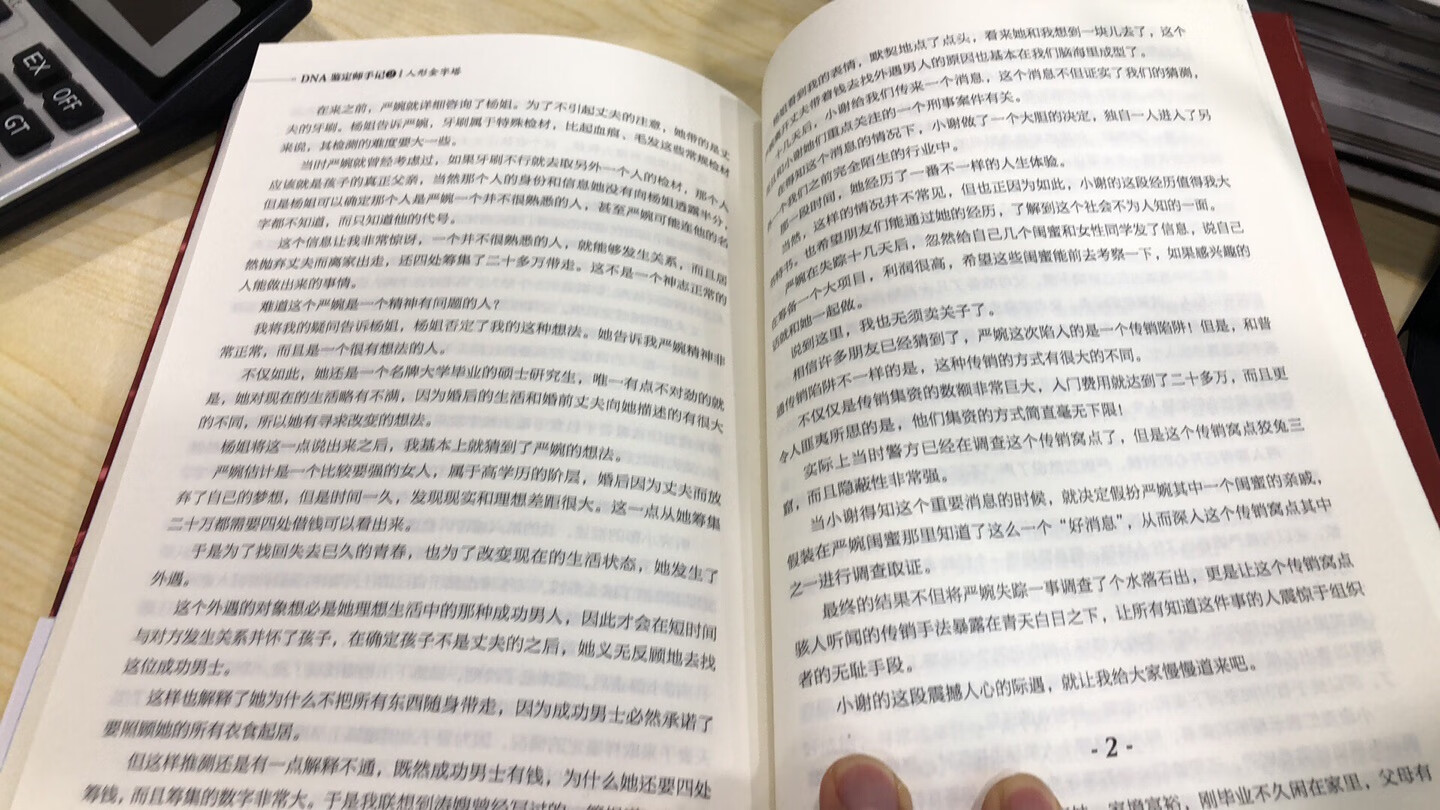 EX
OFF
GT
DNA 鉴定师手记2 | 人形金字塔
在来之前，严婉就详细咨询了杨姐。为了不引起丈夫的注意，她带的是丈
夫的牙刷。杨姐告诉严婉，牙刷属于特殊检材，比起血痕、毛发这些常规检材
来说，其检测的难度要大一些。
当时严婉就曾经考虑过，如果牙刷不行就去取另外一个人的检材，那个人
应该就是孩子的真正父亲，当然那个人的身份和信息她没有向杨姐透露半分，
但是杨姐可以确定那个人是严婉一个并不很熟悉的人，甚至严婉可能连他的名
字都不知道，而只知道他的代号。
这个信息让我非常惊讶，一个并不很熟悉的人，就能够发生关系，而且居
然抛弃丈夫而离家出走，还四处筹集了二十多万带走。这不是一个神志正常的
人能做出来的事情。
难道这个严婉是一个精神有问题的人？
我将我的疑问告诉杨姐，杨姐否定了我的这种想法。她告诉我严婉精神非
常正常，而且是一个很有想法的人。
不仅如此，她还是一个名牌大学毕业的硕士研究生，唯一有点不对劲的就
是，她对现在的生活略有不满，因为婚后的生活和婚前丈夫向她描述的有很大
的不同，所以她有寻求改变的想法。
杨姐将这一点说出来之后，我基本上就猜到了严婉的想法。
严婉估计是一个比较要强的女人，属于高学历的阶层，婚后因为丈夫而放
弃了自己的梦想，但是时间一久，发现现实和理想差距很大。这一点从她筹集
二十万都需要四处借钱可以看出来。
于是为了找回失去已久的青春，也为了改变现在的生活状态，她发生了
外遇。
这个外遇的对象想必是她理想生活中的那种成功男人，因此才会在短时间
与对方发生关系并怀了孩子，在确定孩子不是丈夫的之后，她义无反顾地去找
这位成功男士。
这样也解释了她为什么不把所有东西随身带走，因为成功男士必然承诺了
要照顾她的所有衣食起居。
但这样推测还是有一点解释不通，既然成功男士有钱，为什么她还要四处
筹钱，而且筹集的数字非常大。于是我联想到涛嫂曾经写过的
看到我的表情，默契地点了点头，看来她和我想到一块儿去了，这个
丈夫带着钱去找外遇男人的原因也基本在我们脑海里成型了。
十几天后，小谢给我们传来一个消息，这个消息不但证实了我们的猜测，
和小谢她们重点关注的一个刑事案件有关。
在得知这个消息的情况下，小谢做了一个大胆的决定，独自一人进入了另
一个我们之前完全陌生的行业中。
那一段时间，她经历了一番不一样的人生体验。
当然，这样的情况并不常见，但也正因为如此，小谢的这段经历值得我大
书特书，也希望朋友们能通过她的经历，了解到这个社会不为人知的一面。
严婉在失踪十几天后，忽然给自己几个闺蜜和女性同学发了信息，说自己
在筹备一个大项目，利润很高，希望这些闺蜜能前去考察一下，如果感兴趣的
话就和她一起做。
说到这里，我也无须卖关子了。
相信许多朋友已经猜到了，严婉这次陷入的是一个传销陷阱！但是，和普
通传销陷阱不一样的是，这种传销的方式有很大的不同。
不仅仅是传销集资的数额非常巨大，入门费用就达到了二十多万，而且更
令人匪夷所思的是，他们集资的方式简直毫无下限！
实际上当时警方已经在调查这个传销窝点了，但是这个传销窝点狡兔三
窟，而且隐蔽性非常强。
当小谢得知这个重要消息的时候，就决定假扮严婉其中一个闺蜜的亲戚，
假装在严婉闺蜜那里知道了这么一个“好消息”，从而深入这个传销窝点其中
之一进行调查取证。
最终的结果不但将严婉失踪一事调查了个水落石出，更是让这个传销窝点
骇人听闻的传销手法暴露在青天白日之下，让所有知道这件事的人震惊于组织
者的无耻手段。
小谢的这段震撼人心的际遇，就让我给大家慢慢道来吧。
- 2 -
家境富裕，刚毕业不久闲在家里，父母有